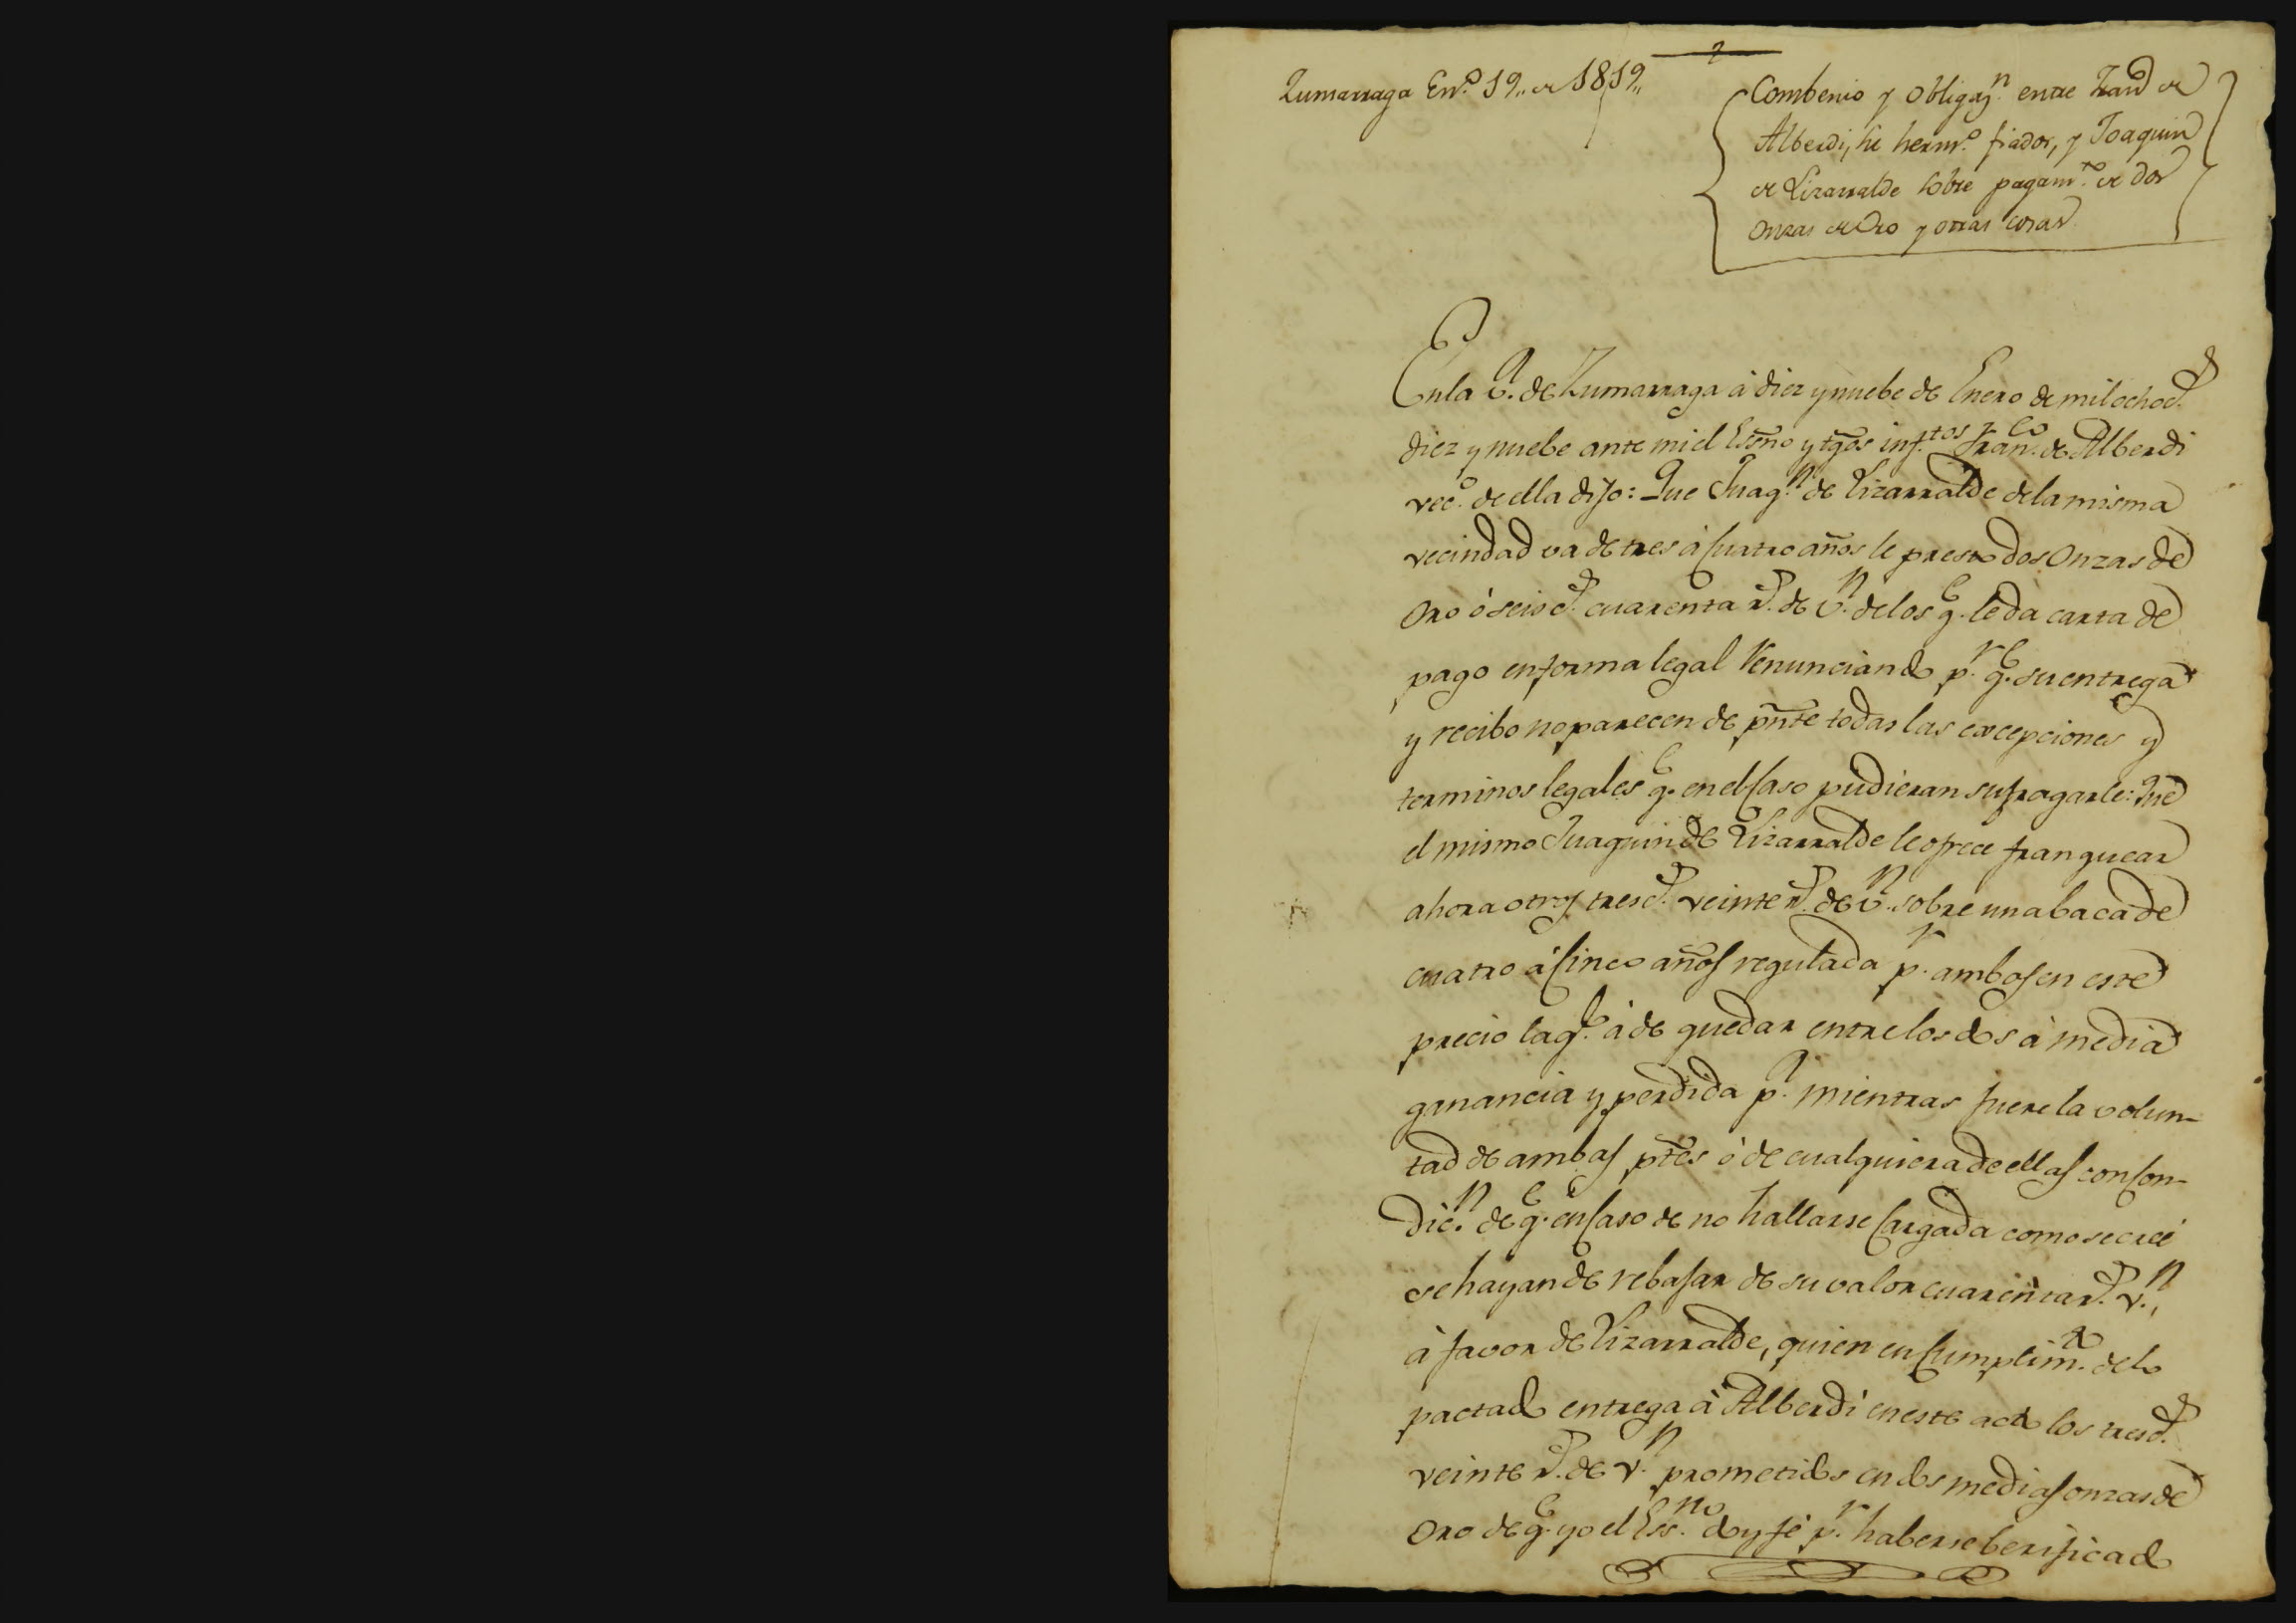 2
Zumarraga En.º 19,, de 1819,,
Combenio y obligaz.n entre Fran.co de
Alberdi, su herm.º fiador, y Joaquin
de Lizarralde sobre pagam.to de dos
onzas de Oro y otras cosas
En la V.a de Zumarraga à diez y nuebe de Enero de mil ochoc.s
diez y nuebe ante mi el Esc̃no y tg̃os inf.tos Fran.co de Alberdi
vec.o de ella dijo: Que Juaq.n de Lizarralde de la misma
vecindad va de tres à cuatro años le presto dos Onzas de
Oro ó seisc.s cuarenta r.s de v.n de los q.e le da carta de
pago en forma legal renunciando p.r q.e su entrega
y recibo no parecen de pñte todas las excepciones y
terminos legales q.e en el caso pudieran sufragarle: Que
el mismo Juaquin de Lizarralde le ofrece franquear
ahora otros tresc.s veinte r.s de v.n sobre una baca de
cuatro à cinco años regulada p.r ambos en este
precio la q.l à de quedar entre los dos à media
ganancia y perdida p.a mientras fuere la volun-
tad de ambas pt̃es ó de cualquiera de ellas con con-
dic.n de q.e en caso de no hallarse cargada como se cree
se hayan de rebajar de su valor cuarenta r.s v.n,
à favor de Lizarralde, quien en cumplim.to de lo
pactado entrega à Alberdi en este acto los tresc.s
veinte r.s de v.n prometidos en dos medias onzas de
Oro de q.e yo el Ess.no doy fé p.r haberse berificado